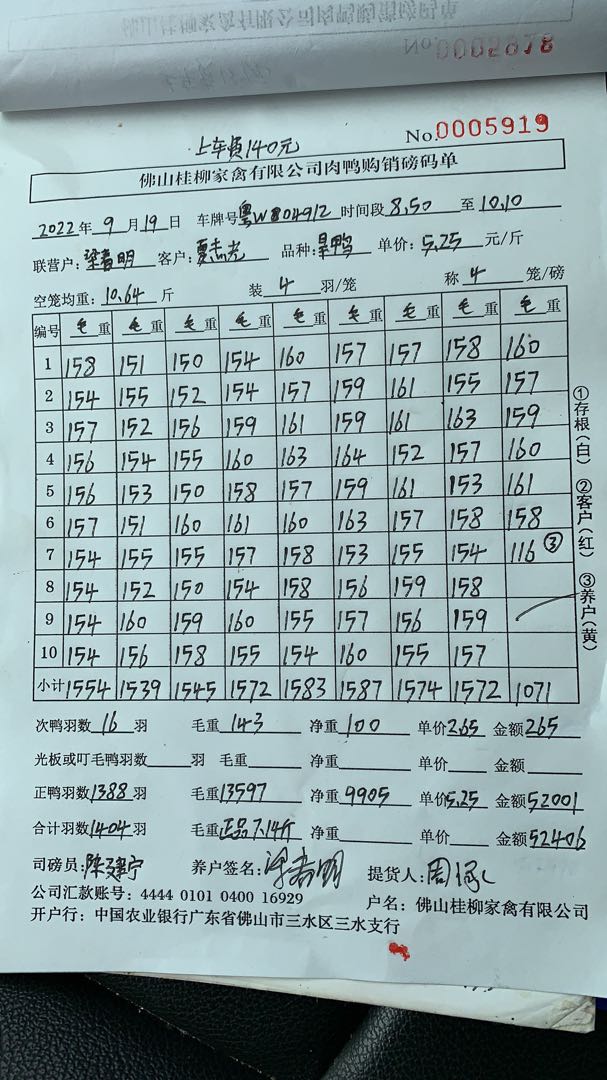 No.0005918
上车费140元
No.0005919
佛山桂柳家禽有限公司肉鸭购销磅码单
2022年 9月 19日 车牌号粤W804912 时间段8.50至10.10
联营户: 客户: 品种: 旱鸭 单价: 5.25 元/斤
空笼均重: 10.64 斤 装 4 羽/笼 称 4 笼/磅
编号 毛重 毛重 毛重 毛重 毛重 毛重 毛重 毛重 毛重
1 158 151 150 154 160 157 157 158 160
2 154 155 152 154 157 159 161 155 157
3 157 152 156 159 161 159 161 163 159
4 156 154 155 160 163 164 152 157 160
5 156 153 150 158 157 159 161 153 161
6 157 151 160 161 160 163 157 158 158
7 154 155 155 157 158 153 155 154 116 ③
8 154 152 150 154 158 156 159 158
9 154 160 159 160 155 157 156 159
10 154 156 158 155 154 160 155 157
小计 1554 1539 1545 1572 1583 1587 1574 1572 1071
①存根(白) ②客户(红) ③养户(黄)
次鸭羽数 16 羽 毛重 143 净重 100 单价 2.65 金额 265
光板或叮毛鸭羽数 羽 毛重 净重 单价 金额
正鸭羽数 1388 羽 毛重 13597 净重 9905 单价 5.25 金额 52001
合计羽数 1404 羽 毛重 正品7.14斤 净重 单价 金额 52406
司磅员: 陈建宁 养户签名: 提货人:
公司汇款账号: 4444 0101 0400 16929 户名: 佛山桂柳家禽有限公司
开户行: 中国农业银行广东省佛山市三水区三水支行